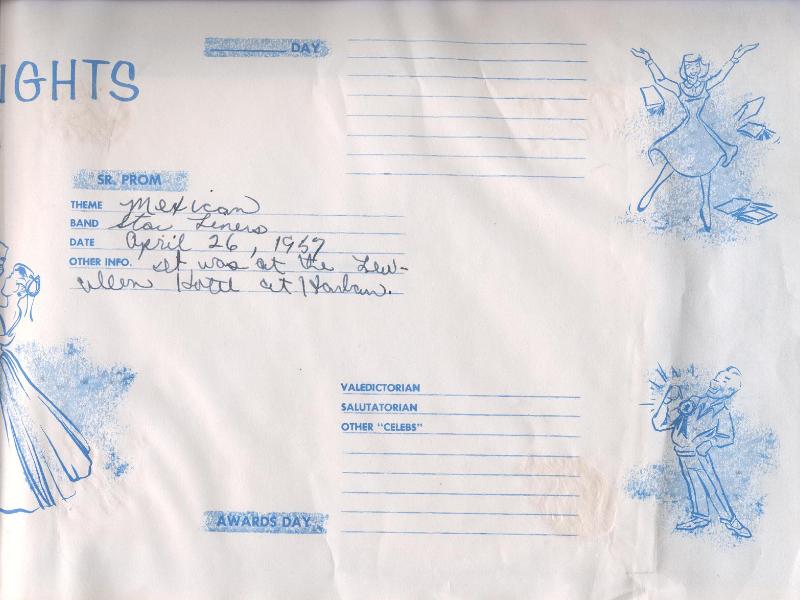 IGHTS
DAY
SR. PROM
THEME Mexican
BAND Star Liners
DATE April 26, 1957
OTHER INFO. It was at the Lew-
allen Hotel at Harlan.
VALEDICTORIAN
SALUTATORIAN
OTHER "CELEBS"
AWARDS DAY